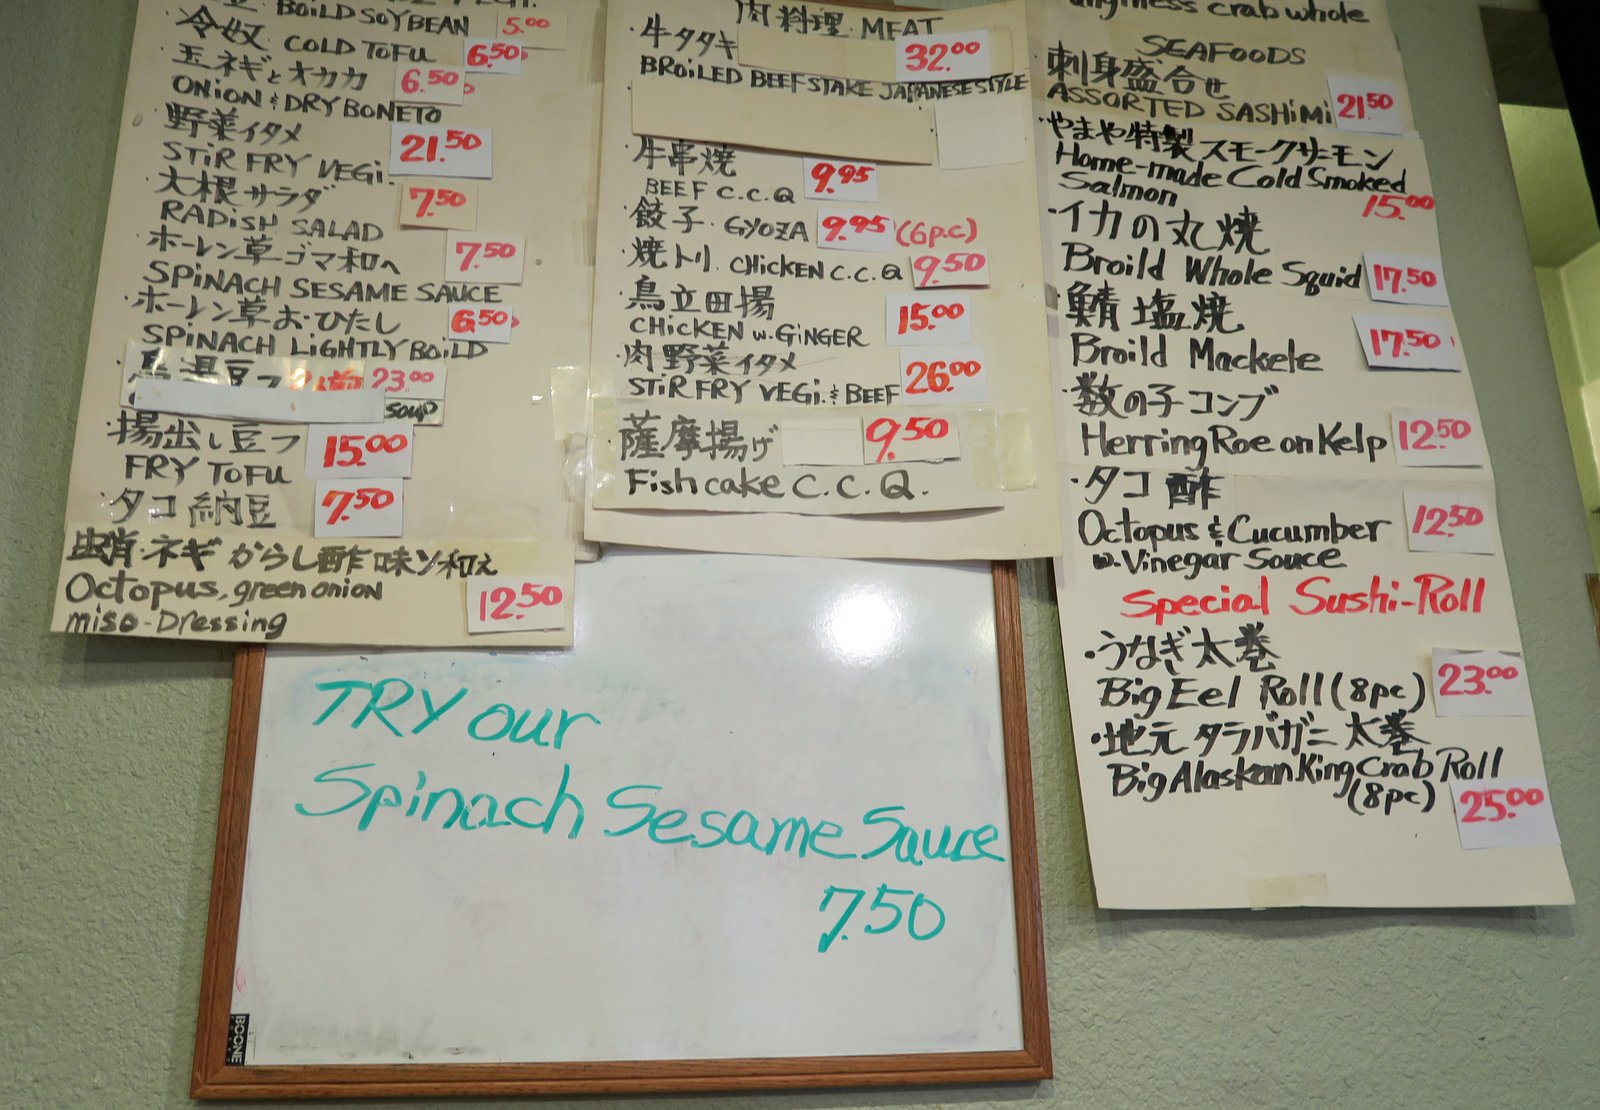 BOILD SOYBEAN 5.00
冷奴 COLD TOFU 6.50
玉ネギとオカカ 6.50
ONION & DRY BONETO
野菜イタメ 21.50
STIR FRY VEGI.
大根サラダ 7.50
RADISH SALAD
ホーレン草ゴマ和へ 7.50
SPINACH SESAME SAUCE
ホーレン草おひたし 6.50
SPINACH LIGHTLY BOILD
23.00
SOUP
揚出し豆フ 15.00
FRY TOFU
タコ納豆 7.50
ネギからし酢味ソ和え
Octopus, green onion 12.50
miso-Dressing
肉料理 MEAT
牛タタキ 32.00
BROILED BEEF STAKE JAPANESE STYLE
牛串焼 9.95
BEEF C.C.Q
餃子 GYOZA 9.95 (6p.c)
焼トリ CHICKEN C.C.Q 9.50
鳥立田揚 15.00
CHICKEN w. GINGER
肉野菜イタメ 26.00
STIR FRY VEGI. & BEEF
薩摩揚げ 9.50
Fish cake C.C.Q.
crab whole
SEAFOODS
刺身盛合せ
ASSORTED SASHIMI 21.50
やまや特製スモークサーモン
Home-made Cold Smoked
Salmon 15.00
イカの丸焼
Broild Whole Squid 17.50
鯖塩焼
Broild Mackele 17.50
数の子コンブ
Herring Roe on Kelp 12.50
タコ酢
Octopus & Cucumber 12.50
w. Vinegar Souce
Special Sushi-Roll
うなぎ太巻
Big Eel Roll (8pc) 23.00
地元タラバガニ太巻
Big Alaskan King Crab Roll
(8pc) 25.00
TRY our
Spinach Sesame Sauce
7.50
BOONE